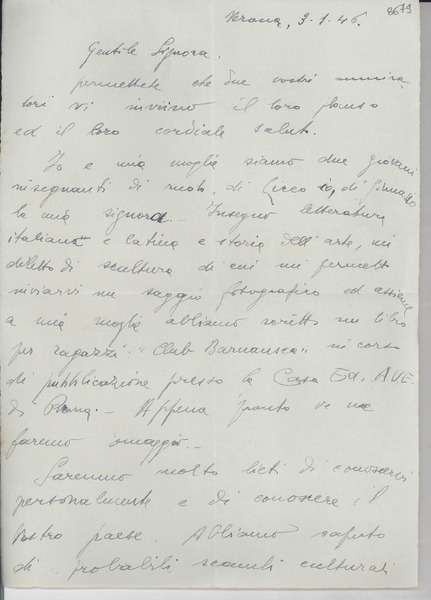 8679
Verona, 3.1.46.
Gentile Signora.
permettete che due vostri ammira
tori vi inviino il loro plauso
ed il loro cordiale saluto.
Io e mia moglie siamo due giovani
insegnanti di ruolo, di Liceo io, di Ginnasio
la mia signora. Insegno letteratura
italiana e latina e storia dell'arte, mi
diletto di scultura di cui mi permetto
inviarvi un saggio fotografico ed assieme
a mia moglie abbiamo scritto un libro
per ragazzi "Club" in corso
di pubblicazione presso la Casa Ed. A.V.E.
di Roma. - Appena pronto ve ne
faremo omaggio. -
Saremmo molto lieti di conoscervi
personalmente e di conoscere il
Vostro paese. Abbiamo saputo
di probabili scambi culturali